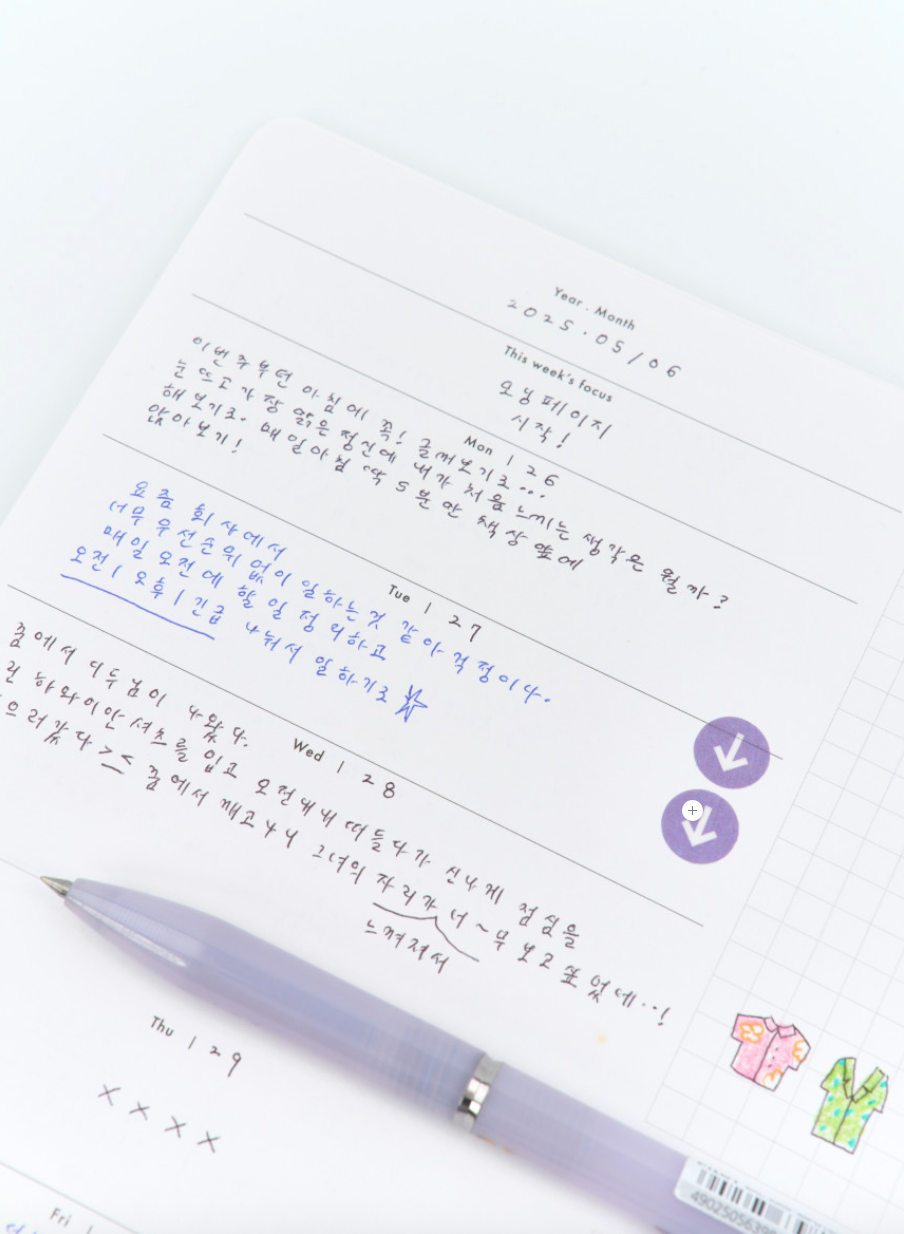 Year . Month
2025.05/06
This week's focus
모닝페이지
시작!
Mon | 26
이번주부턴 아침에 꼭! 글써보기로...
눈 뜨고 가장 맑은 정신에 내가 처음 느끼는 생각은 뭘까?
해보기로. 매일아침 딱 5분만 책상 앞에
앉아보기!
Tue | 27
요즘 회사에서
너무 우선순위 없이 일하는것 같아 걱정이다.
매일 오전에 할 일 정리하고
오전/오후/긴급 나눠서 일하기로
Wed | 28
꿈에서 디두님이 나왔다.
하와이안셔츠를 입고 오전내내 떠들다가 신나게 점심을
으러갔다 >_< 꿈에서 깨고나니 그녀의 자리가 너~무
느껴져서
보고 싶었네..!
Thu | 29
× × × ×
Fri |
4902505639